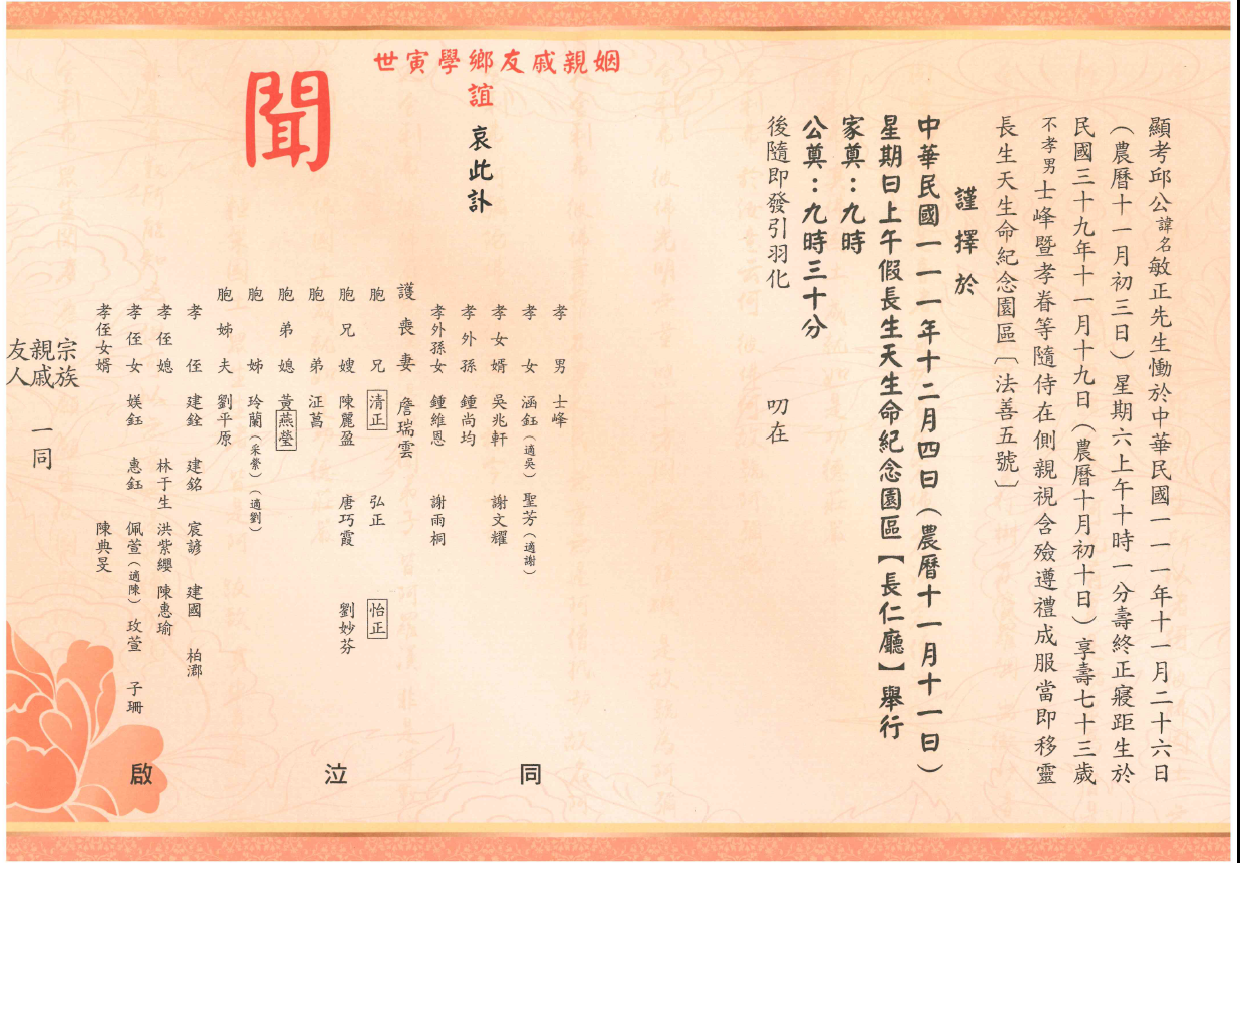 顯考邱公諱名敏正先生慟於中華民國一一一年十一月二十六日
（農曆十一月初三日）星期六上午十時一分壽終正寢距生於
民國三十九年十一月十九日（農曆十月初十日）享壽七十三歲
不孝男士峰暨孝眷等隨侍在側親視含殮遵禮成服當即移靈
長生天生命紀念園區〔法善五號〕
謹擇於
中華民國一一一年十二月四日（農曆十一月十一日）
星期日上午假長生天生命紀念園區【長仁廳】舉行
家奠：九時
公奠：九時三十分
後隨即發引羽化 叨在
世寅學鄉友戚親姻
誼
哀此訃
聞
孝男 士峰
孝女 涵鈺（適吳） 聖芳（適謝）
孝女婿 吳兆軒 謝文耀
孝外孫 鍾尚均
孝外孫女 鍾維恩 謝雨桐
護喪妻 詹瑞雲
胞兄 清正 弘正 怡正
胞兄嫂 陳麗盈 唐巧霞 劉妙芬
胞弟 泟萬
胞弟媳 黃燕瑩
胞姊 玲蘭（采縈）（適劉）
胞姊夫 劉平原
孝侄 建銓 建銘 宸諺 建國 柏瀞
孝侄媳 林于生 洪紫纓 陳惠瑜
孝侄女 媄鈺 惠鈺 佩萱（適陳） 玫萱 子珊
孝侄女婿 陳典旻
同泣啟
宗族
親戚
友人
一同